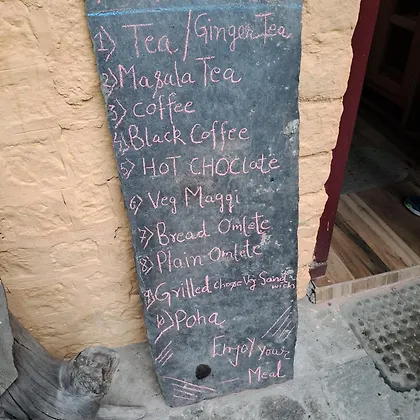 1) Tea/Ginger Tea
2) Masala Tea
3) coffee
4) Black Coffee
5) HOT CHOClate
6) Veg Maggi
7) Bread Omlete
8) Plain Omlete
9) Grilled cheese Veg Sandwich
10) Poha
Enjoy your
Meal